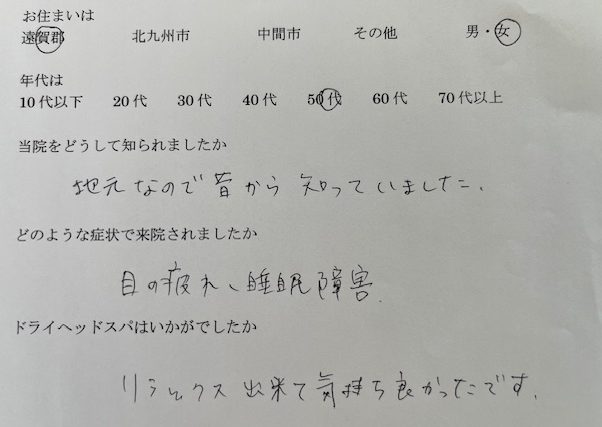 お住まいは
遠賀郡 北九州市 中間市 その他 男・女
年代は
10代以下 20代 30代 40代 50代 60代 70代以上
当院をどうして知られましたか
地元なので昔から知っていました.
どのような症状で来院されましたか
目の疲れ、睡眠障害.
ドライヘッドスパはいかがでしたか
リラックス出来て気持ち良かったです.